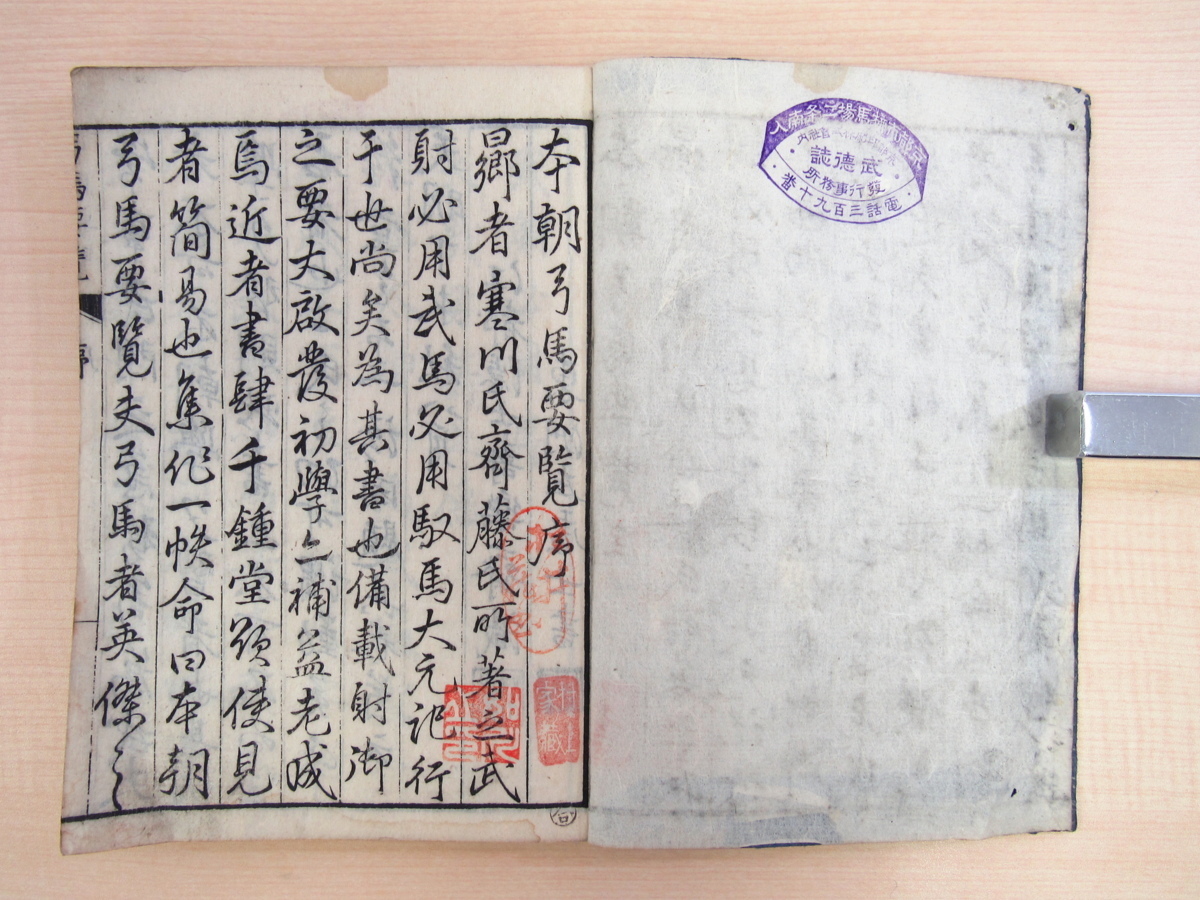 武德誌
發行事務所
電話三百九十番
本朝弓馬要覽序
曏者寒川氏齊藤氏所著之武
射必用武馬必用馭馬大元記行
于世尚矣為其書也備載射御
之要大啟發初學亡補益老成
焉近者書肆千鍾堂欲使見
者簡易也集作一帙命曰本朝
弓馬要覽夫弓馬者英傑之
序
合
村上
家藏